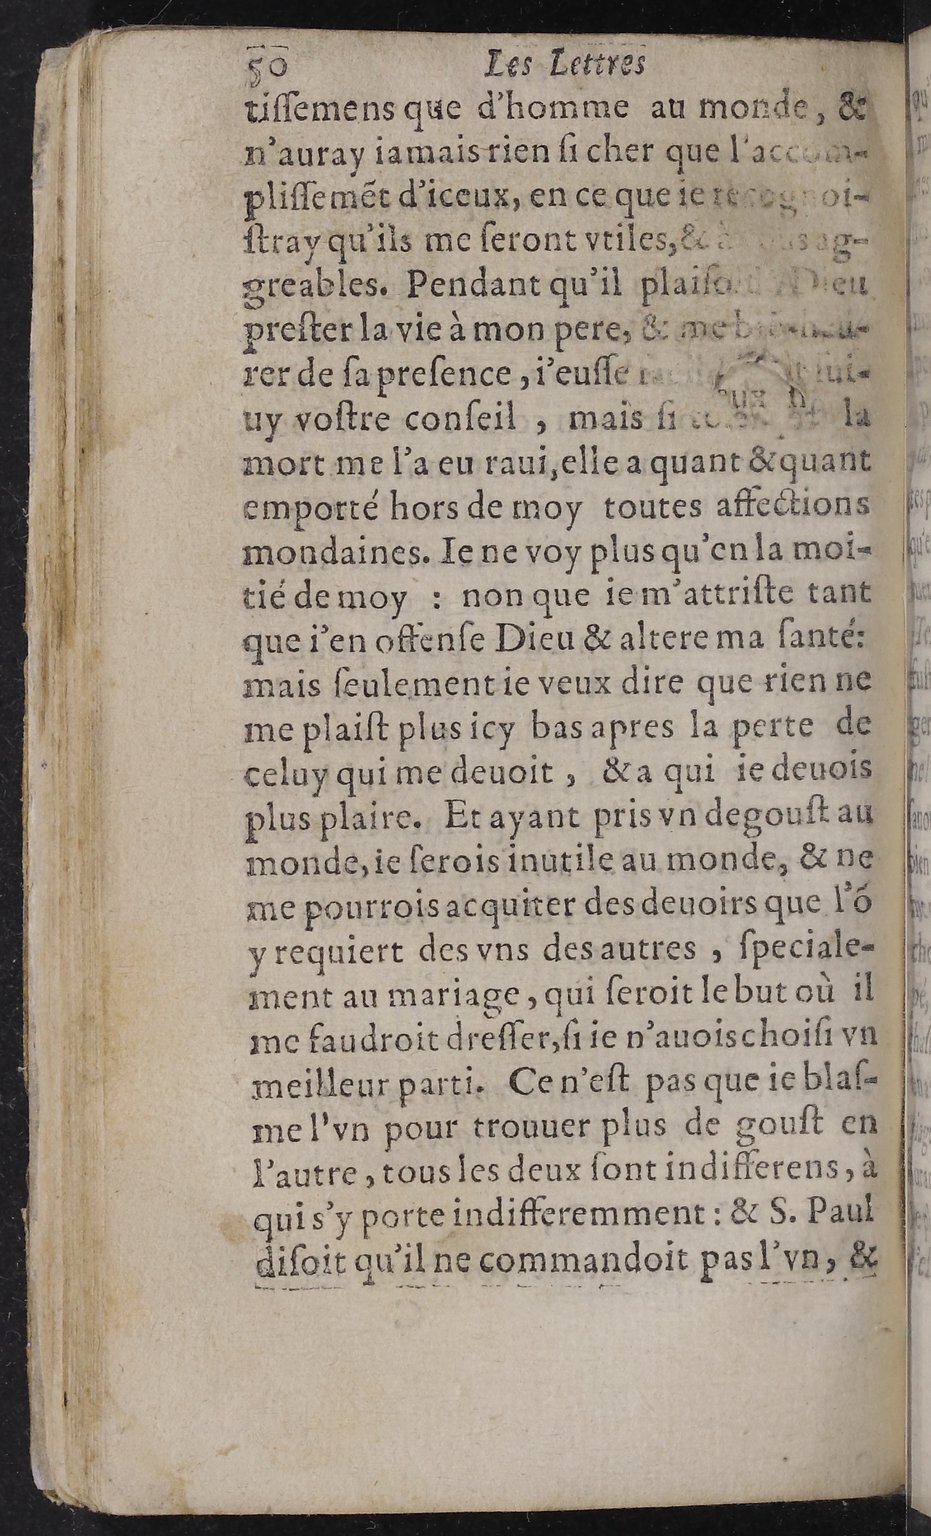 50 Les Lettres
tiſſemens que d'homme au monde, &
n'auray iamais rien ſi cher que l'accom-
pliſſemēt d'iceux, en ce que ie recognoi-
ſtray qu'ils me ſeront vtiles, & à ag-
greables. Pendant qu'il plaiſo Dieu
preſter la vie à mon pere, & me
rer de ſa preſence, i'euſſe ſui-
uy voſtre conſeil, mais ſi la
mort me l'a eu raui, elle a quant & quant
emporté hors de moy toutes affections
mondaines. Ie ne voy plus qu'en la moi-
tié de moy : non que ie m'attriſte tant
que i'en offenſe Dieu & altere ma ſanté:
mais ſeulement ie veux dire que rien ne
me plaiſt plus icy bas apres la perte de
celuy qui me deuoit, & a qui ie deuois
plus plaire. Et ayant pris vn degouſt au
monde, ie ſerois inutile au monde, & ne
me pourrois acquiter des deuoirs que l'ō
y requiert des vns des autres, ſpeciale-
ment au mariage, qui ſeroit le but où il
me faudroit dreſſer, ſi ie n'auois choiſi vn
meilleur parti. Ce n'eſt pas que ie blaſ-
me l'vn pour trouuer plus de gouſt en
l'autre, tous les deux ſont indifferens, à
qui s'y porte indifferemment : & S. Paul
diſoit qu'il ne commandoit pas l'vn, &